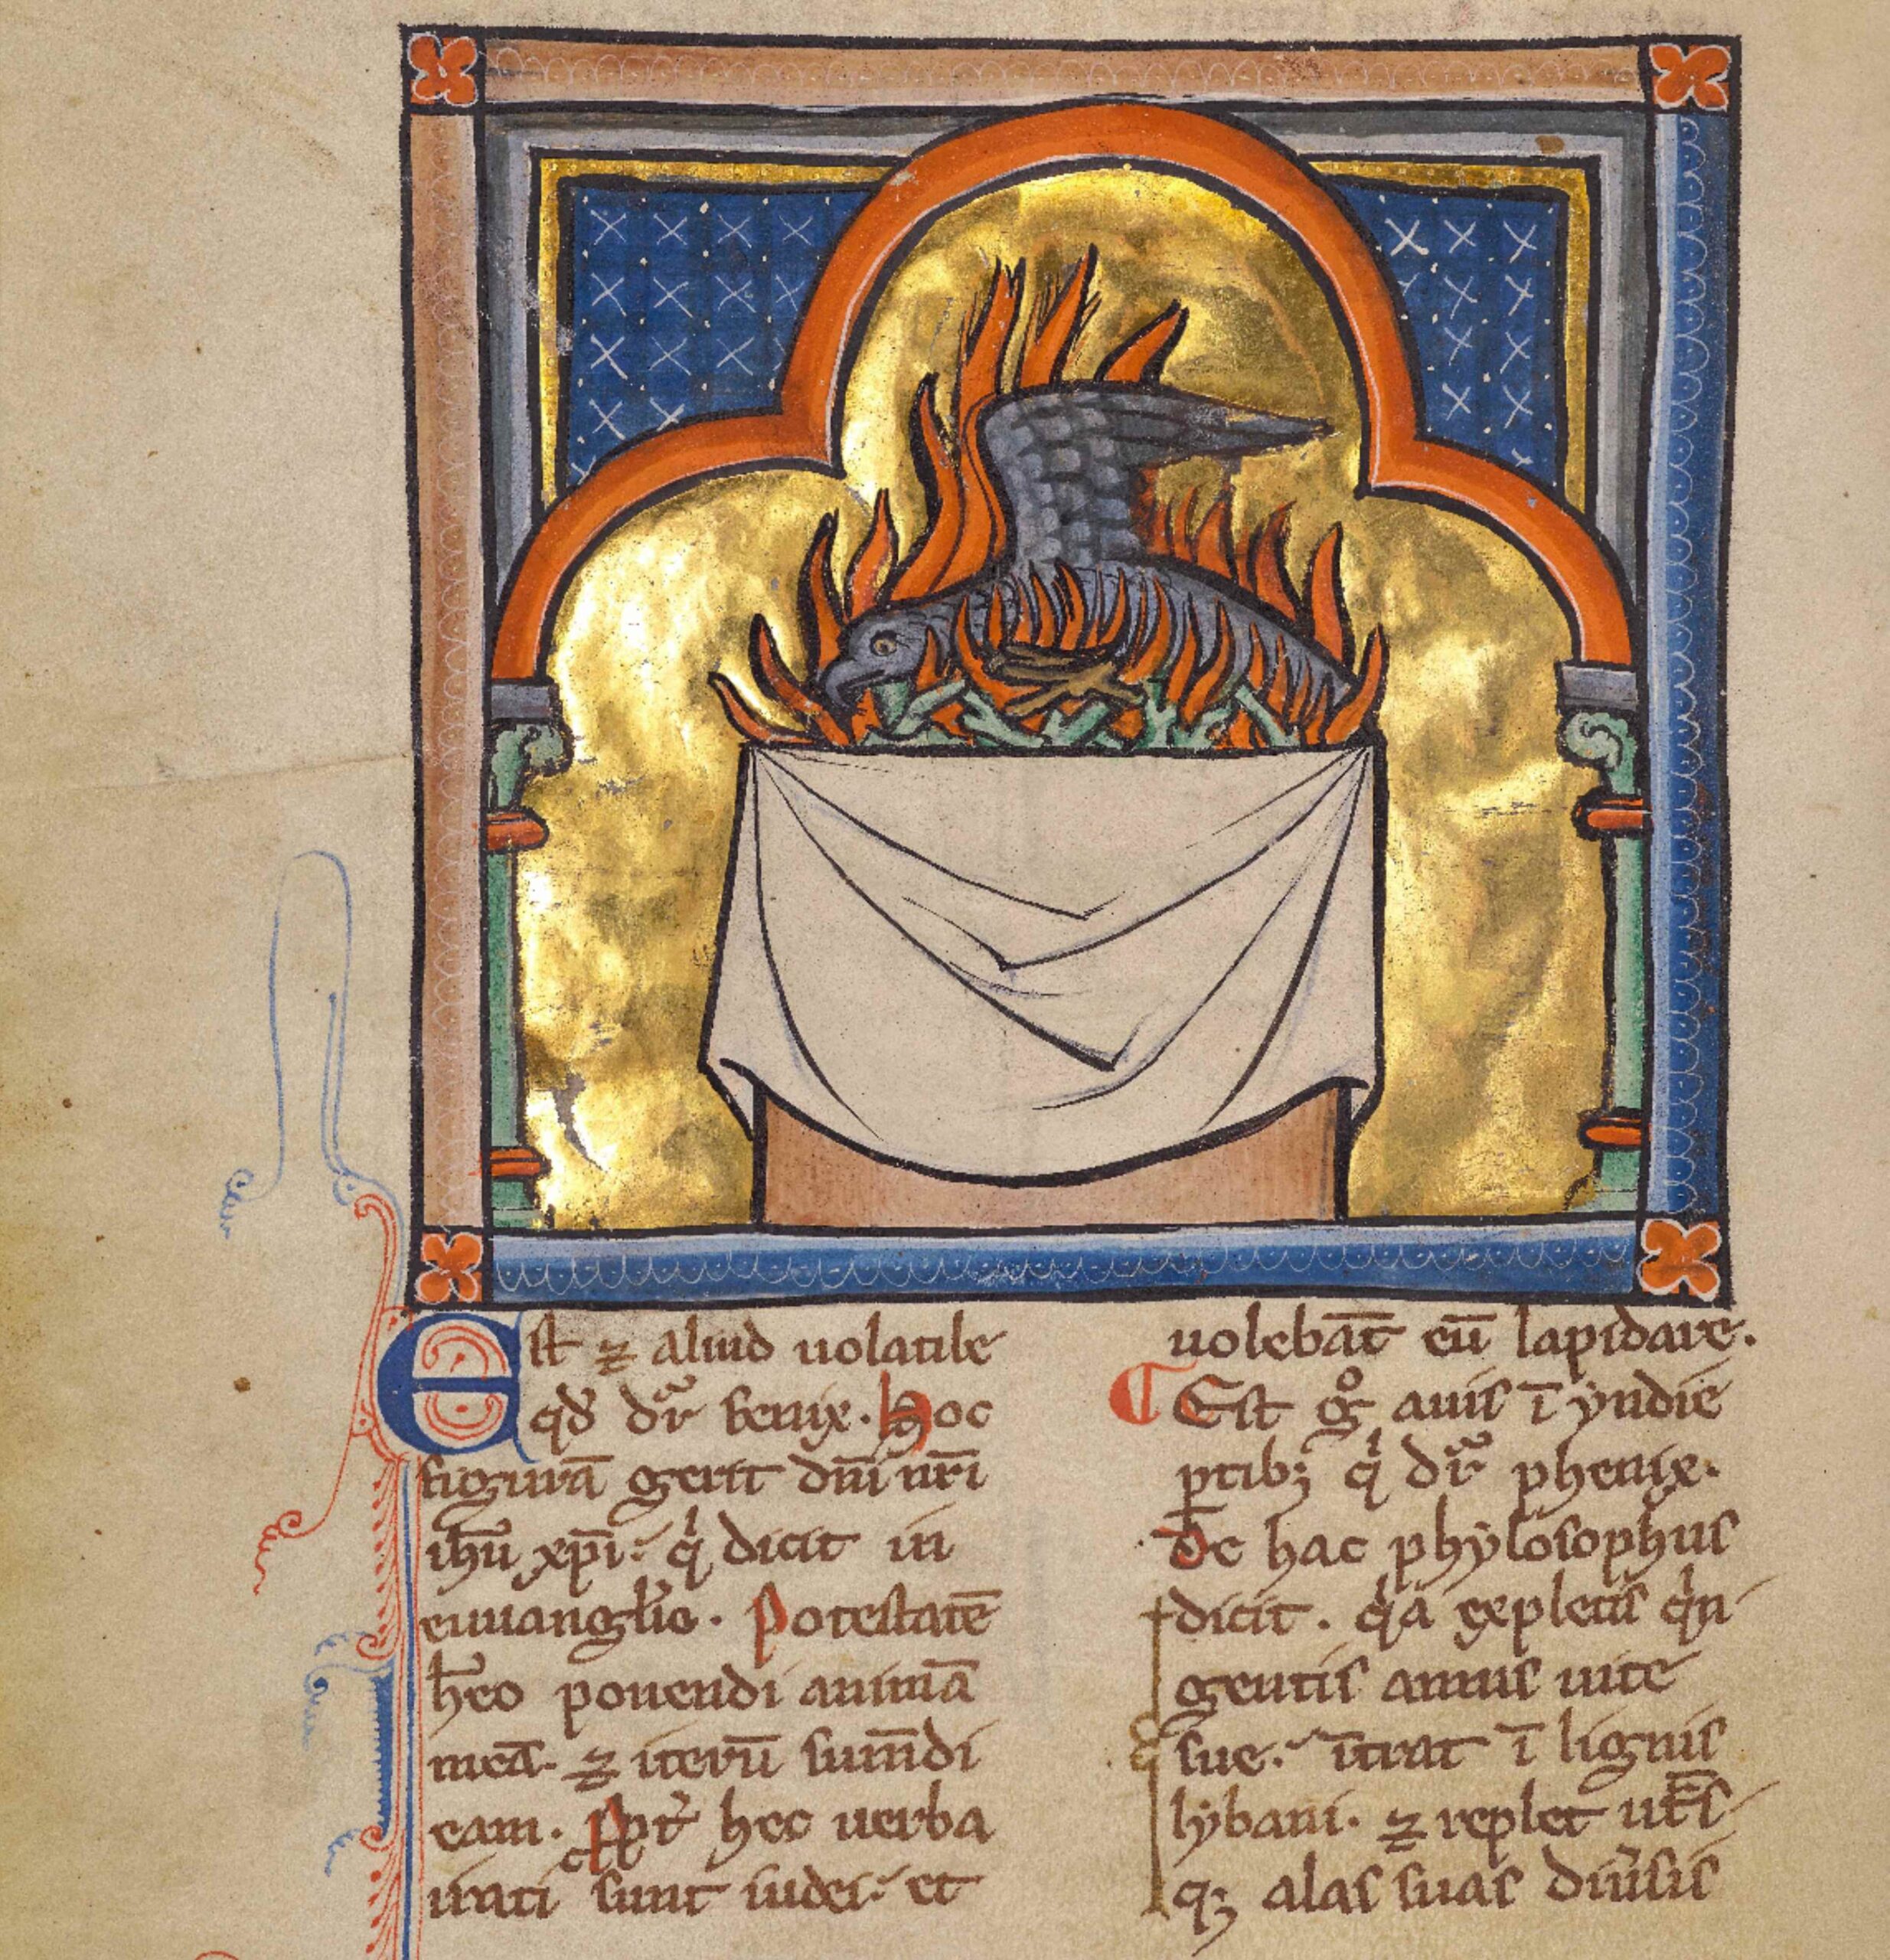 Est ⁊ aliud uolatile
qd̄ dr̄ fenix. Hoc
figurā gerit dn̄i nr̄i
ihū xp̄i. qͥ dicit in
euuangl̓io. Potestatē
h̄eo ponendi animā
meā. ⁊ iterū sum̄di
eam. Ppt̓ hec uerba
irati sunt iudei. et
uolebāt eū lapidare.
Est gͦ auis ī yndie
ꝑtibꝫ qͥ dr̄ phenix.
De hac phylosophus
dicit. qͥa expletis qͥn
gentis annis uite
sue. īt̾at ī lignis
lybani. ⁊ replet ut̾s
qꝫ alas suas diu̾sis